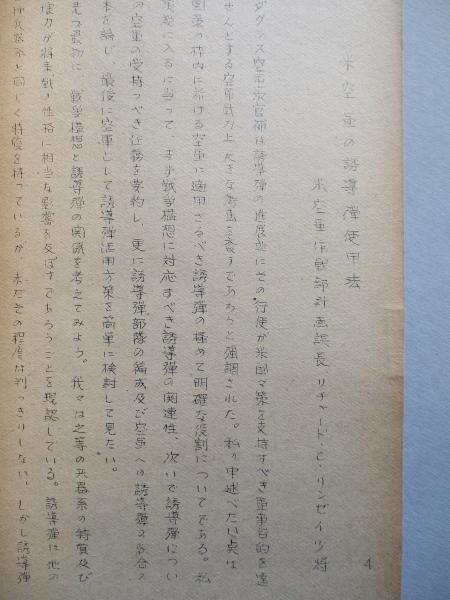 米空軍の誘導弾使用法
米空軍作戦部計画課長 リチャード・C・リンゼイ少将
ダグラス空軍次官補は誘導弾の進展並にその行使が米国々策を支持すべき軍事目的を達
せんとする空軍戦力上大きな考慮を要すであろうと強調された。私の申述べたい点は
国策の枠内に於ける空軍に適用さるべき誘導弾の極めて明確な役割についてである。私
実際に入るに当って、まず戦争構想に対応すべき誘導弾の関連性、次いで誘導弾につい
の空軍の受持つべき任務を要約し、更に誘導弾部隊の編成及び空軍への誘導弾の
を論じ、最後に空軍として誘導弾活用方策を簡単に検討して見たい。
先づ最初に、戦争構想と誘導弾の関係を考えてみよう。我々は之等の兵器系の特質及び
能力が将来戦の性格に相当な影響を及ぼすであろうことを認めている。誘導弾は他の
兵器系と同じく特質を持っているが、未だその程度は判っきりしない、しかし誘導弾
4